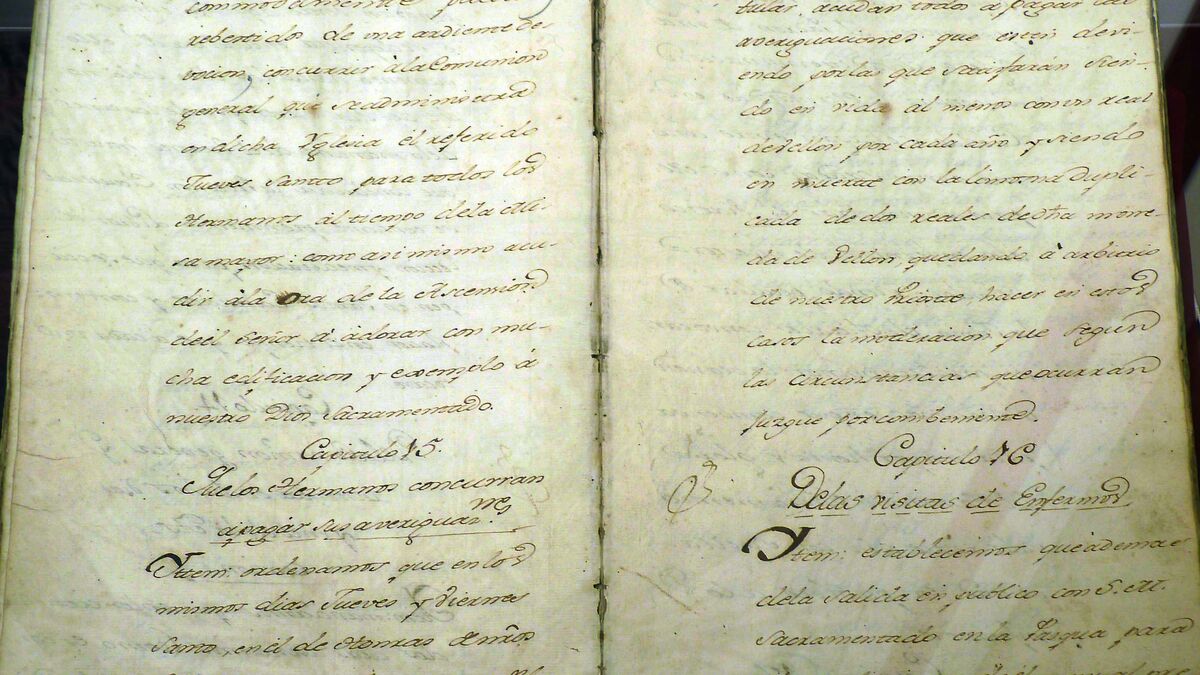 commodamente
rebertidos de una ardiente de
vocion, concurrir à la Comunion
general que se administrará
en dicha Yglesia el referido
Jueves Santto para todos los
Hermanos al tiempo de la Mi
sa mayor: como asi mismo acu
dir à la Ora de la Ascension
deel Señor à adorar con mu-
cha edificacion y exemplo à
nuestro Dios Sacramentado.
Capitulo 15.
Que los Hermanos concurran
apagár sus averiguaz.nes
Yttem: ordenamos que en los
mismos dias Jueves y Viernes
Santo, en él de Honras
tulas, acudan todos à pagar las
averiguaciones que esten devi-
endo, por las que satisfarán sien-
do en vida al menos con un real
de vellon por cada año y siendo
en muerte con la limosna dupli-
cada de dos reales de dha mone-
da de Vellon, quedando à arbitrio
de nuestro hacer en estos
casos la que segun
las circunstancias que ocurran
juzgue por combeniente.
Capitulo 16.
De las visitas de Enfermos
Yttem: establecemos que ademas
dela Salida en publico con S. M.
Sacramentado en la Pasqua para